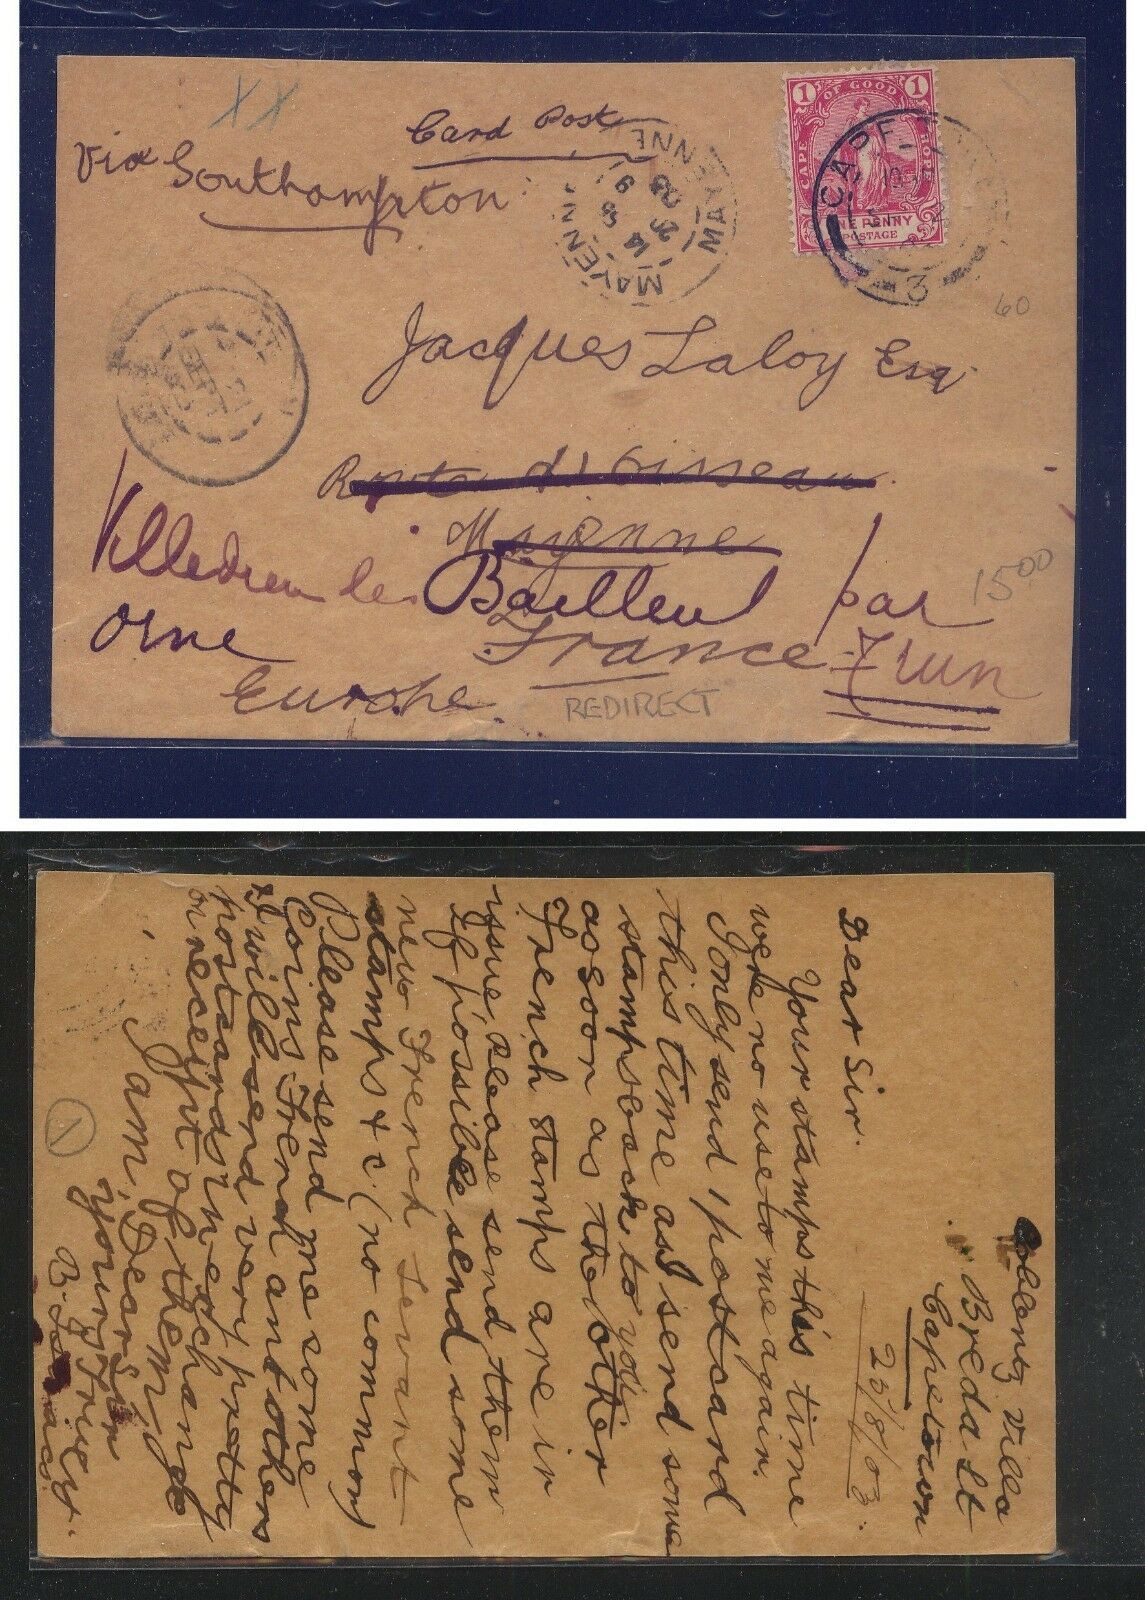 XX
Card Post
via Southampton
1 CAPE OF GOOD HOPE 1
ONE PENNY
POSTAGE
MAYENNE
14 25 8
MAYENNE
CAPE
3
60
Jacques Laloy Esq.
Route d'Oisseau
Mayenne
Villedieu les Bailleul par
Orne
France
Trun
15.00
Europe.
REDIRECT
Coblentz Villa
Breda St
Capetown
25/8/03.
Dear Sir.
Your stamps this time
were no use to me again.
I only send 1 postcard
this time as I send some
stamps back to you
as soon as the other
French stamps are in
issue, please send them
If possible send some
new French Levant
stamps & c. (no common)
Please send me some
Coins French and others
& I will send very pretty
postcards in exchange
on receipt of them
I am, Dear Sir
Yours Truly
B.
1